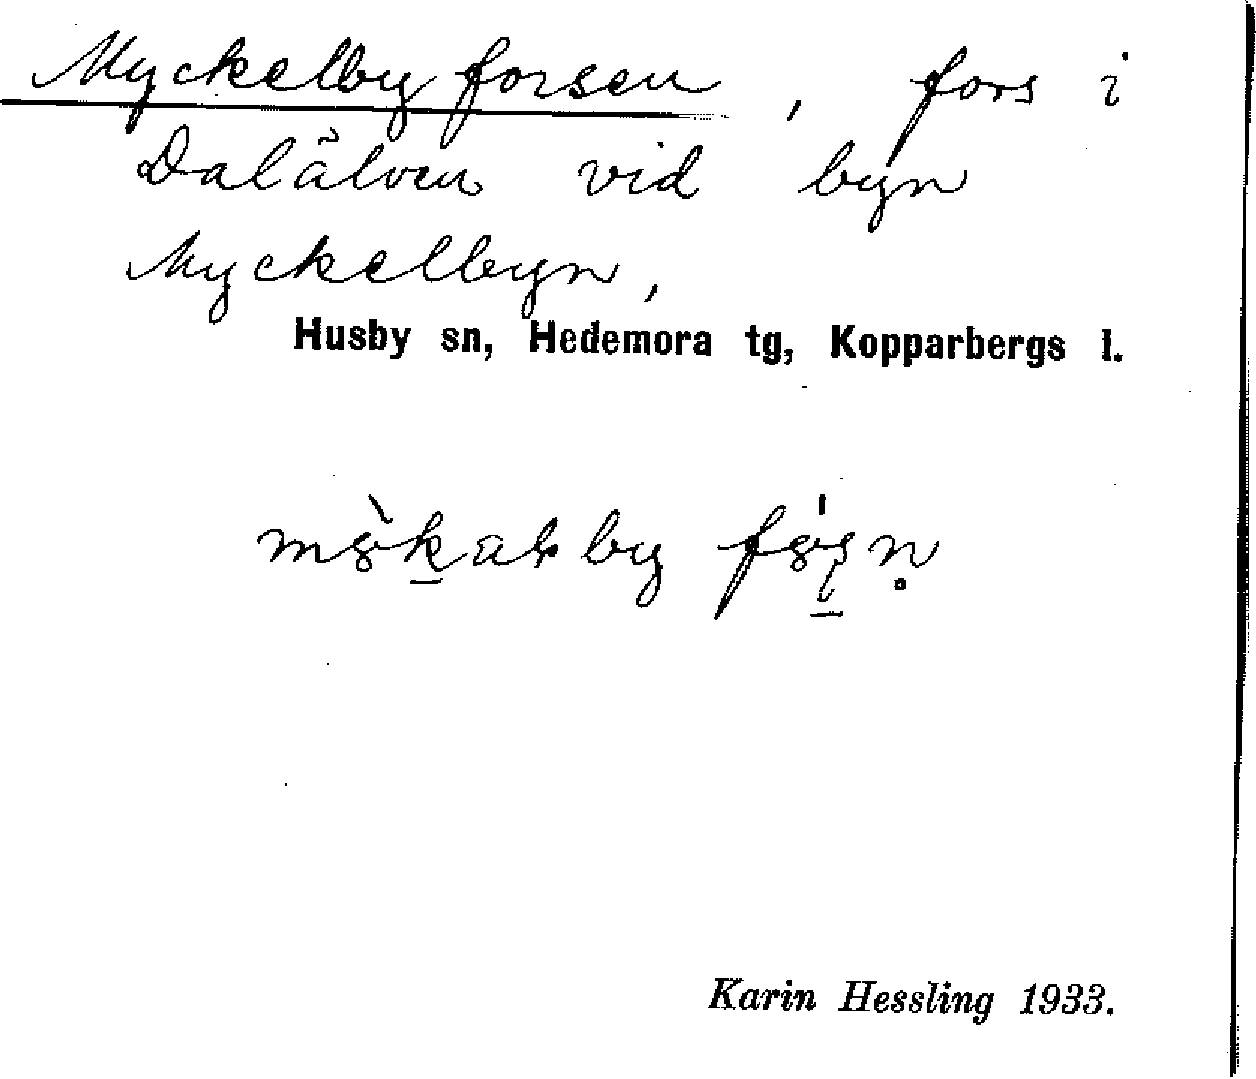 Myckelbyforsen, fors i
Dalälven vid byn
Myckelbyn,
Husby sn, Hedemora tg, Kopparbergs l.
Karin Hessling 1933.